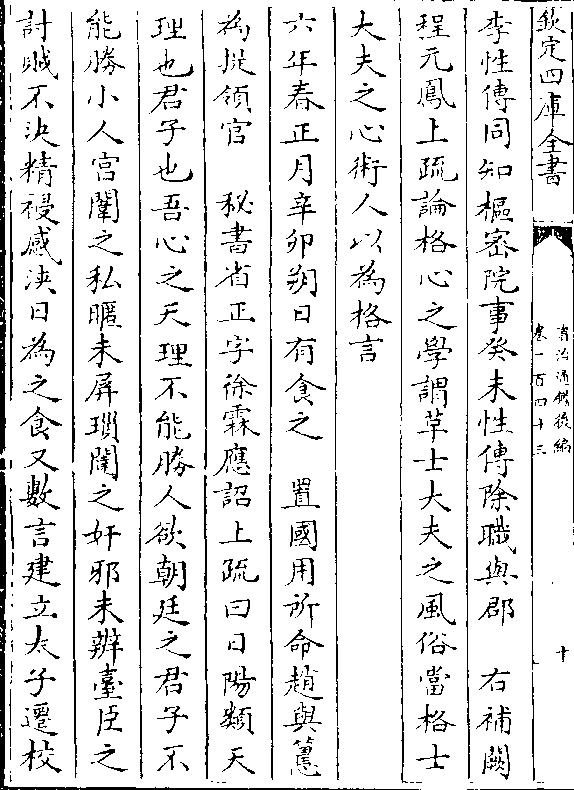 欽定四庫全書
資治通鑑後編
卷一百四十三
十
李性傳同知樞密院事癸未性傳除職與郡　右補闕
程元鳳上疏論格心之學謂革士大夫之風俗當格士
大夫之心術人以為格言
六年春正月辛卯朔日有食之　置國用所命趙與𥲅
為提領官　秘書省正字徐霖應詔上疏曰日陽類天
理也君子也吾心之天理不能勝人欲朝廷之君子不
能勝小人宮闈之私暱未屏瑣闥之奸邪未辨臺臣之
討賊不決精祲感浹日為之食又數言建立太子遷校